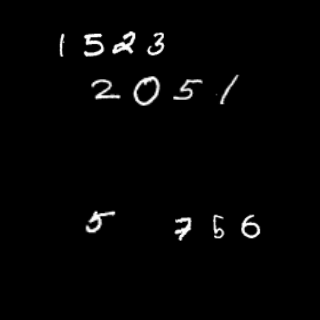 1 5 2 3
2 0 5 1
5 7 5 6